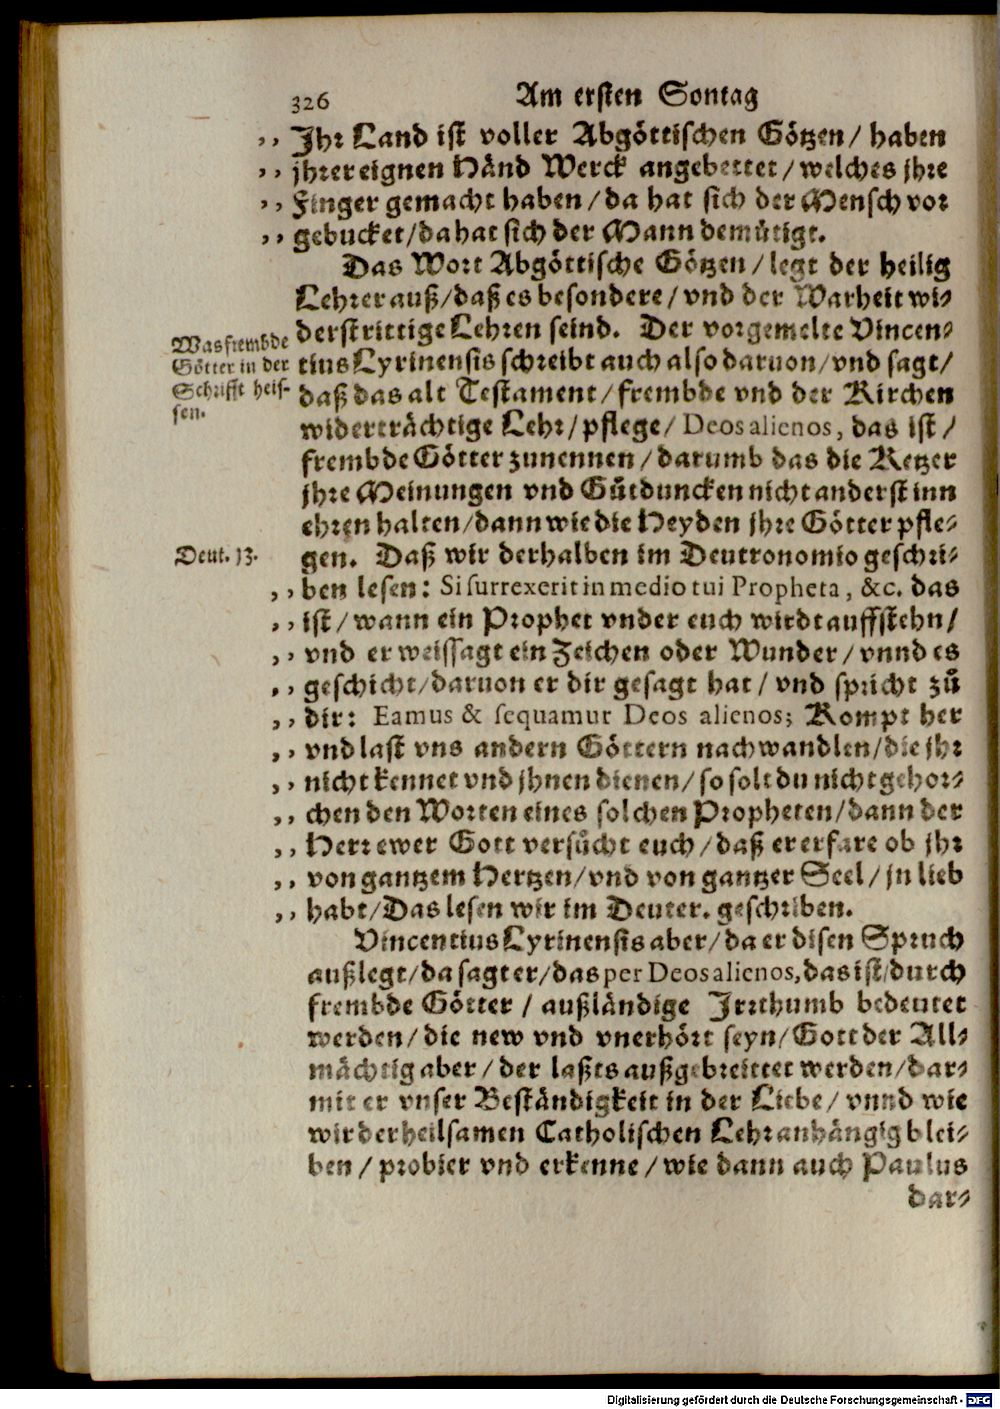 326 Am ersten Sontag
,, Jhr Land ist voller Abgöttischen Götzen / haben
,, jhrer eignen Händ Werck angebettet / welches jhre
,, Finger gemacht haben / da hat sich der Mensch vor
,, gebucket / da hat sich der Mann demütigt.
Das Wort Abgöttische Götzen / legt der heilig
Lehrer auß / daß es besondere / vnd der Warheit wi-
derstrittige Lehren seind. Der vorgemelte Vincen-
tius Lyrinensis schreibt auch also daruon / vnd sagt /
daß das alt Testament / frembde vnd der Kirchen
widerträchtige Lehr / pflege / Deos alienos, das ist /
frembde Götter zunennen / darumb das die Ketzer
jhre Meinungen vnd Gůtduncken nicht anderst inn
ehren halten / dann wie die Heyden jhre Götter pfle-
gen. Daß wir derhalben im Deutronomio geschri-
,, ben lesen: Si surrexerit in medio tui Propheta, &c. das
,, ist / wann ein Prophet vnder euch wirdt auffstehn /
,, vnd er weissagt ein Zeichen oder Wunder / vnnd es
,, geschicht / daruon er dir gesagt hat / vnd spricht zů
,, dir: Eamus & sequamur Deos alienos; Kompt her
,, vnd last vns andern Göttern nachwandlen / die jhr
,, nicht kennet vnd jhnen dienen / so solt du nicht gehor-
,, chen den Worten eines solchen Propheten / dann der
,, Herr ewer Gott versůcht euch / daß er erfare ob jhr
,, von gantzem Hertzen / vnd von gantzer Seel / jn lieb
,, habt / Das lesen wir im Deuter. geschriben.
Vincentius Lyrinensis aber / da er disen Spruch
außlegt / da sagt er / das per Deos alienos, das ist / durch
frembde Götter / außländige Jrrthumb bedeutet
werden / die new vnd vnerhört seyn / Gott der All-
mächtig aber / der laßts außgebreittet werden / dar-
mit er vnser Beständigkeit in der Liebe / vnnd wie
wir der heilsamen Catholischen Lehr anhängig blei-
ben / probier vnd erkenne / wie dann auch Paulus
dar-
Was frembde
Götter in der
Schrifft heis-
sen.
Deut. 13.
Digitalisierung gefördert durch die Deutsche Forschungsgemeinschaft - DFG